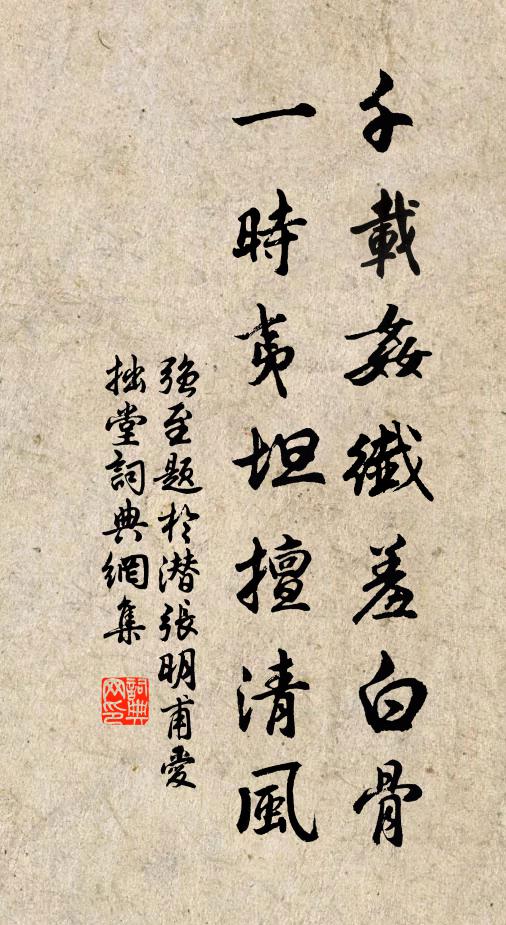 千載姦纖羞白骨
一時夷坦擅清風
強至題於潛張明甫愛
拙堂詞典網集
詞典網印